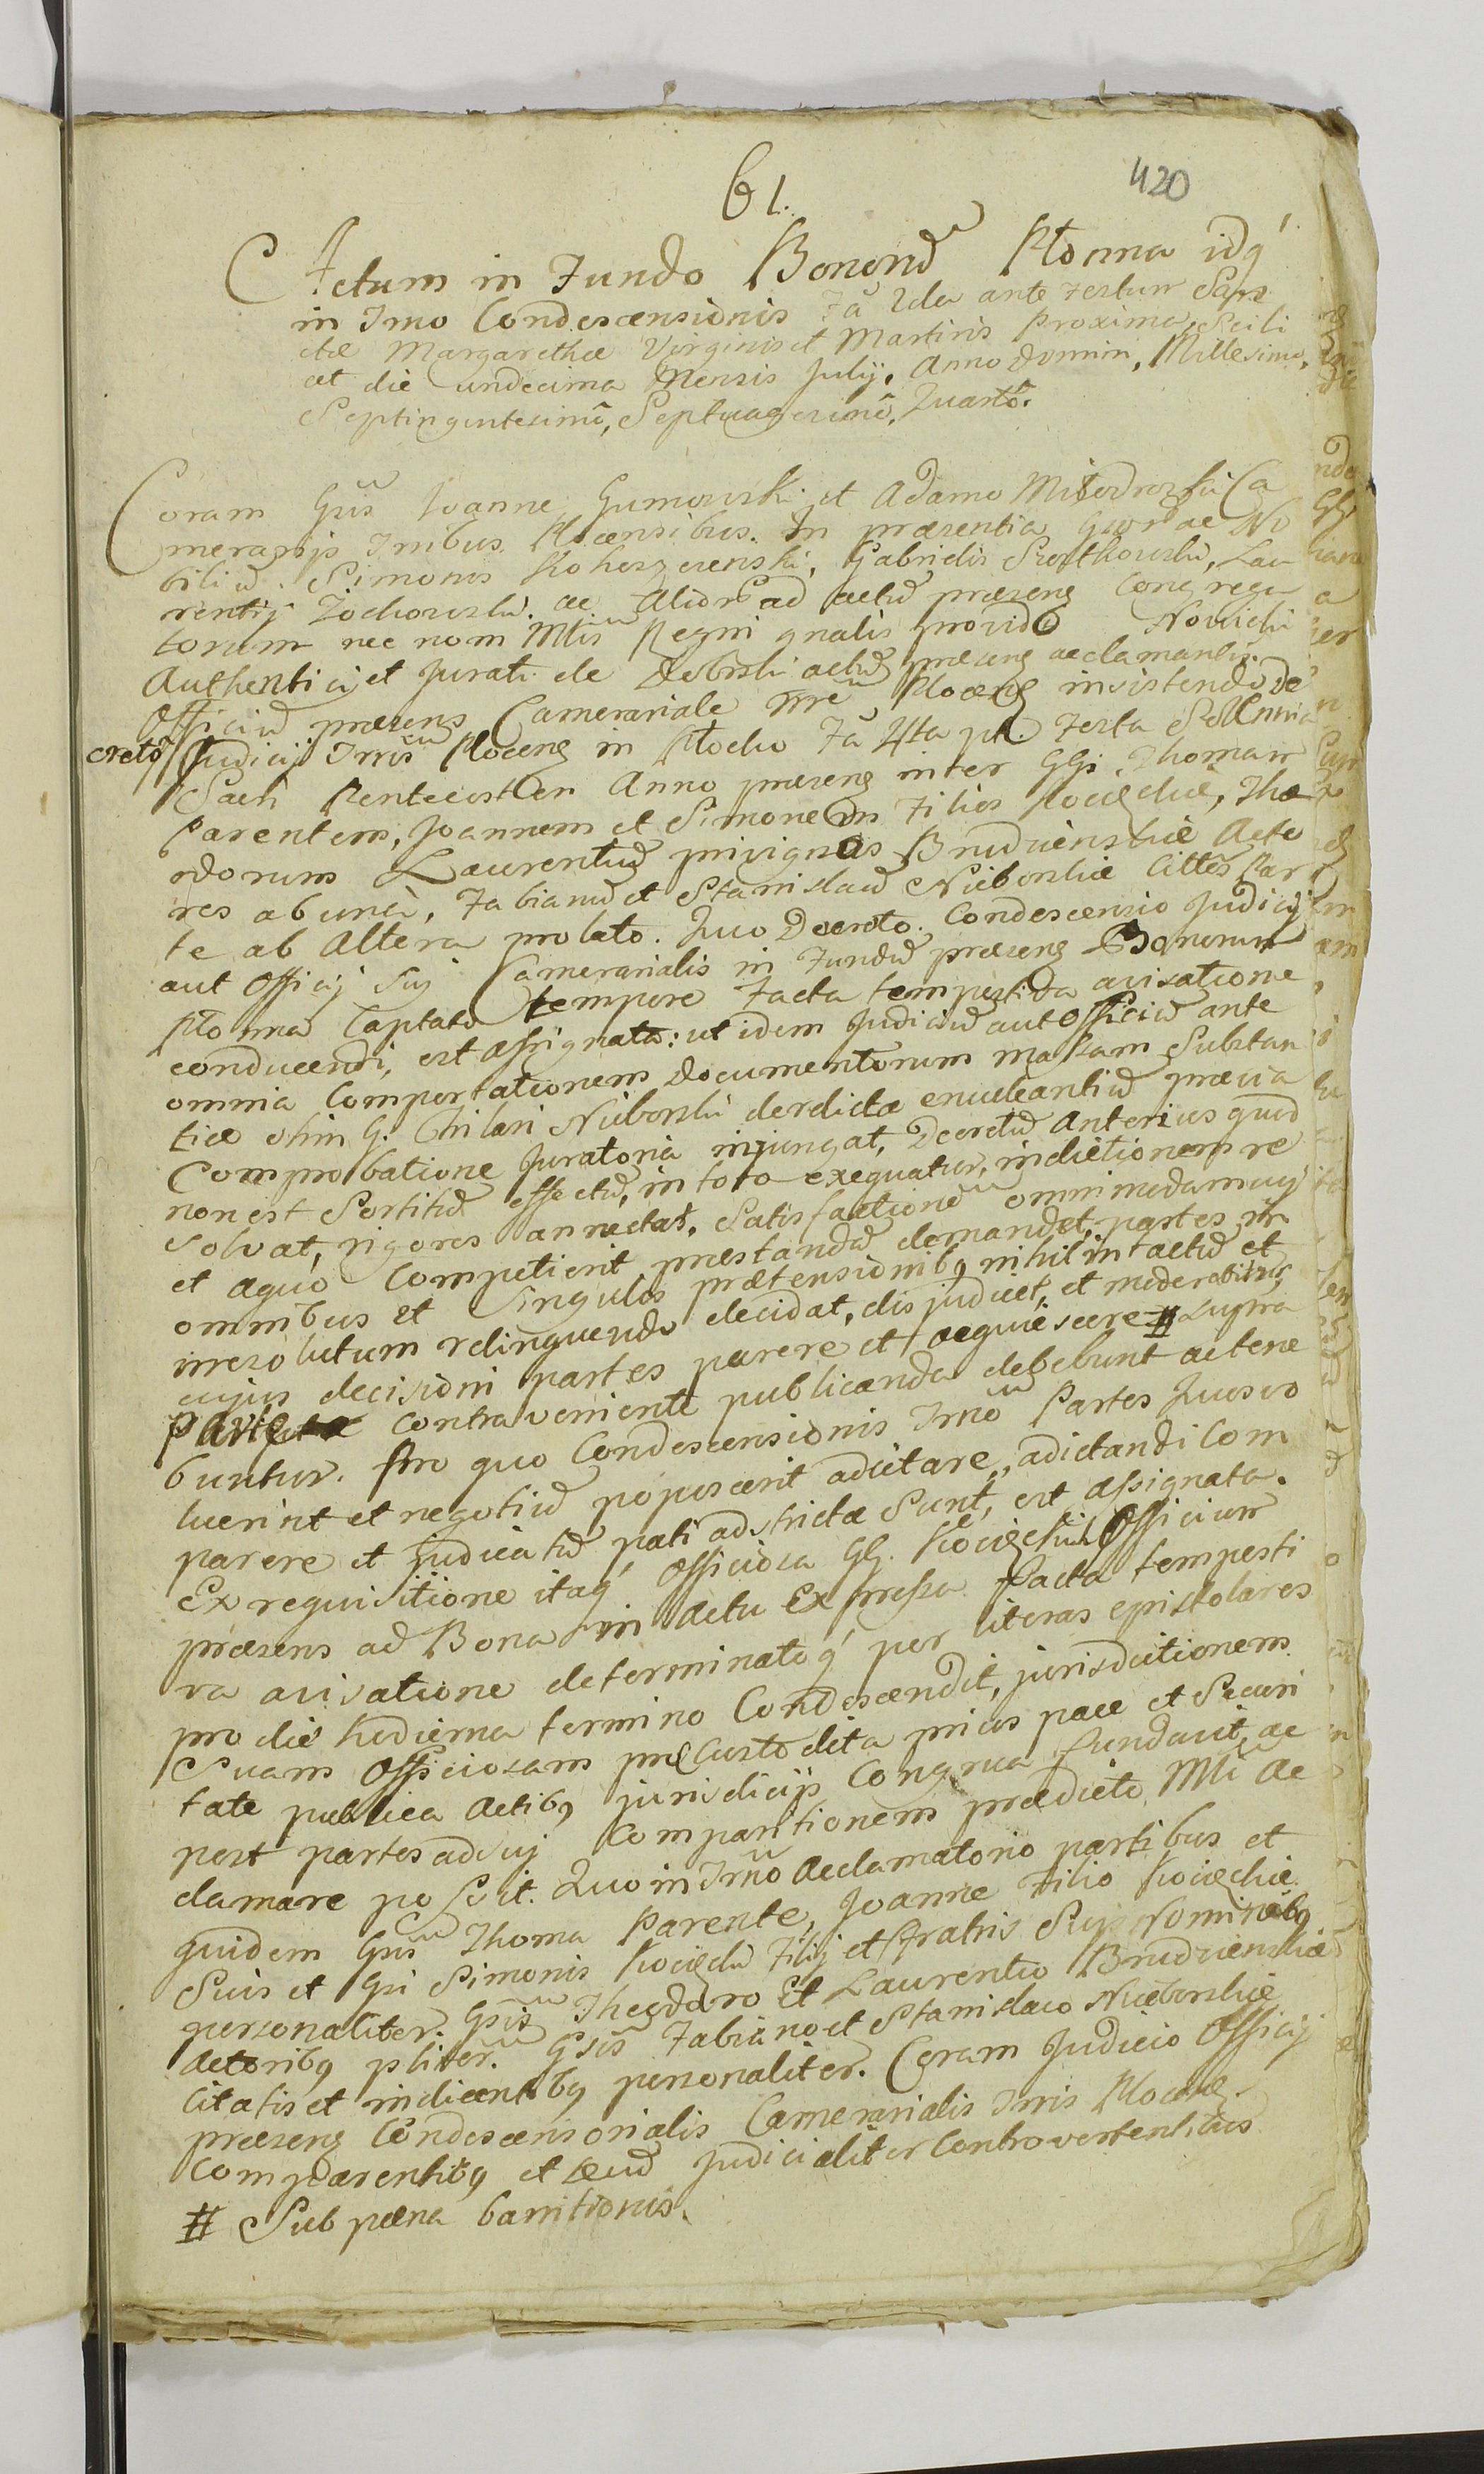 61.
420
Actum in Fundo Bonorũ Płonna idq'
in Trno Condescensionis Fa 2da ante Festum San
ctæ Margarethæ Virginis et Martiris proxima, Scili
cet die undecima Mensis Julij, Anno Domini, Millesimo,
Septingentesimõ, Septuagesimõ, Quartõ.
Coram Gñs Joanne Gumowski et Adamo Ca
merarijs Trribus Plocensibus. In præsentia Gñor ac No
biliũ. Simonis Gabrielis Lau
rentij Żochowski ac Alior ad actũ præsens Congrega
torum nec non Mlis Regni gnalis providi
Authentici et Jurati de actũ præsens acclamantis
Officiũ præsens Camerariale Trre Plocens insistendo de
creto Judicij Trris Plocens in Plocko Fa 4ta pt Festa Solennia
Sacri Pentecostes Anno præsens inter GGs Thomam
Parentem, Joannem et Simonem Filios Kocięckie, The
odorum Laurentiũ privignos Brudzienskie Acto
res ab una, Fabianũ et Stanisłaũ Nieborskie Cittos Par
te ab Altera prolato. Quo Decreto Condescensio Judicij
aut Officij Sui Camerarialis in Fundũ præsens Bonorum
Płonna Captato tempore Facta tempestiva avisatione
conducendi, est assignata: ut idem Judiciũ aut Officiũ ante
omnia Comportationem documentorum massam Substan
tiæ olim G. Nieborski derelictæ enucleantiũ prævia
Comprobatione Juratoria injungat, Decretũ Anterius quod
non est Sortitũ effectũ, in toto exequatur, indictionem re
solvat, rigores annectat, Satisfactionẽ omnimodam cuj
et a quo Competierit præstandũ demandet, partes in
omnibus et Singulis prætensionibq nihil intactũ et
irresolutum relinquendo decidat, disjudicet, et moderabitur,
cujus decisioni partes parere et acquiescere # Supra
parte contraveniente publicanda debebunt ac tene
buntur. Pro quo Condescensionis Trno Partes Quasvo
luerint et negotiũ poposcerit adcitare, adictandi Com
parere et judicatũ pati adstrictæ Sunt, est assignata.
Ex requisitione itaq' officiosa GG. Kocięckich Officium
præsens ad Bona in Actu Expressa Facta tempesti
va avisatione determinatoq' per literas epistolares
pro die hodierna termino Condescendit, jurisdictionem
Suam Officiosam præcustodita prius pace et Securi
tate publica Actibq jurisdicijs Congrua fundavit, ac
post partes ad Comparitionem prædicto Mli ac
clamare Quo in Trno Acclamatorio partibus et
quidem Gñs Thoma Parente, Joanne Filio Kocięckie
Suis et Gñ Simonis Kocięcki Filij et Fratris Suis Nominibq
personaliter. Gñs Theodoro Et Laurentio Brudzienskie
Actoribq pliter. Gsis Fabiano et Stanislao Nieborskie
Citatis et indicentibq personaliter. Coram Judicio Officij
præsens Condescensorialis Camerarialis Trris Plocens
Comparentibq et secũ Judicialiter Controvertentibus
# Sub pæna bannitionis.